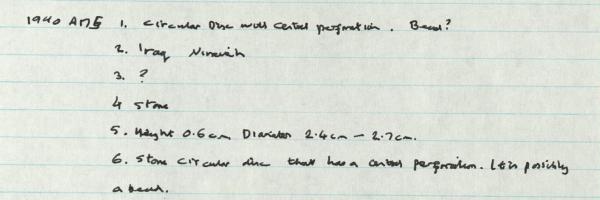 1940 AMS 1. Circular Disc with central perforation. Bead?
2. Iraq Nineveh
3. ?
4 Stone
5. Height 0.6cm Diameter 2.4cm - 2.7cm.
6. Stone circular disc that has a central perforation. It is possibly
a bead.